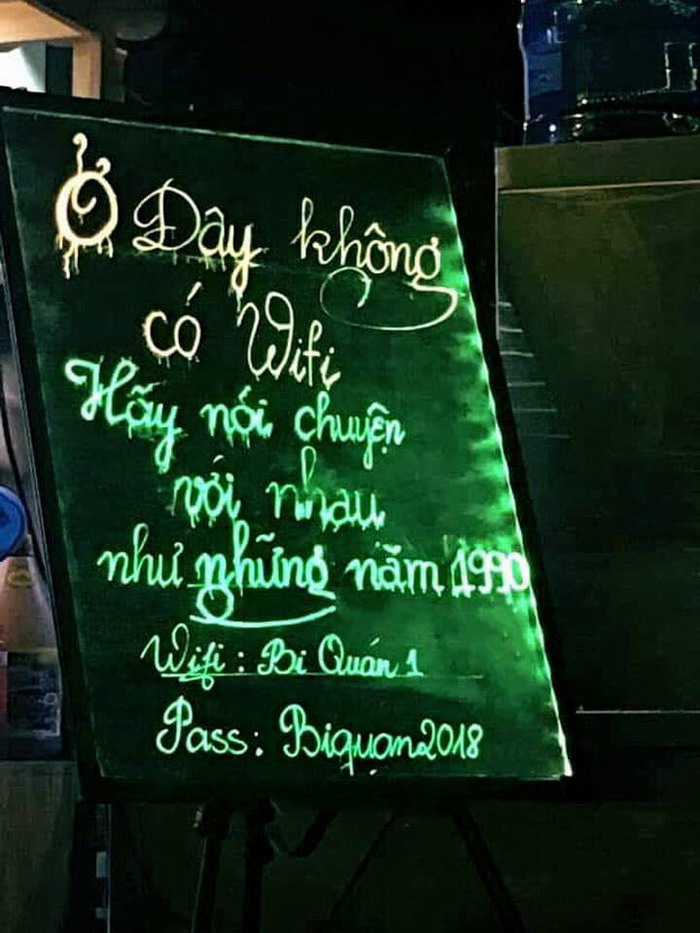 Ở Đây không
có Wifi
Hãy nói chuyện
với nhau
như những năm 1990
Wifi : Bi Quán 1
Pass: Biquan2018